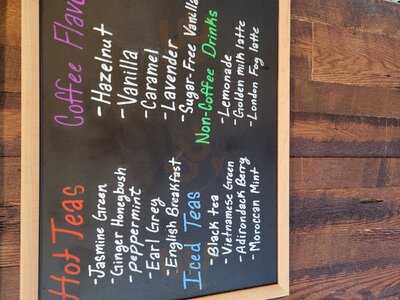 Hot Teas
-Jasmine Green
-Ginger Honeybush
-peppermint
-Earl Grey
-English Breakfast
Iced Teas
-Black tea
-Vietnamese Green
-Adirondack Berry
-Moroccan Mint
Coffee Flav
-Hazelnut
-Vanilla
-Caramel
-Lavender
-Sugar-Free Vanilla
Non-Coffee Drinks
-Lemonade
-Golden milk latte
-London Fog latte